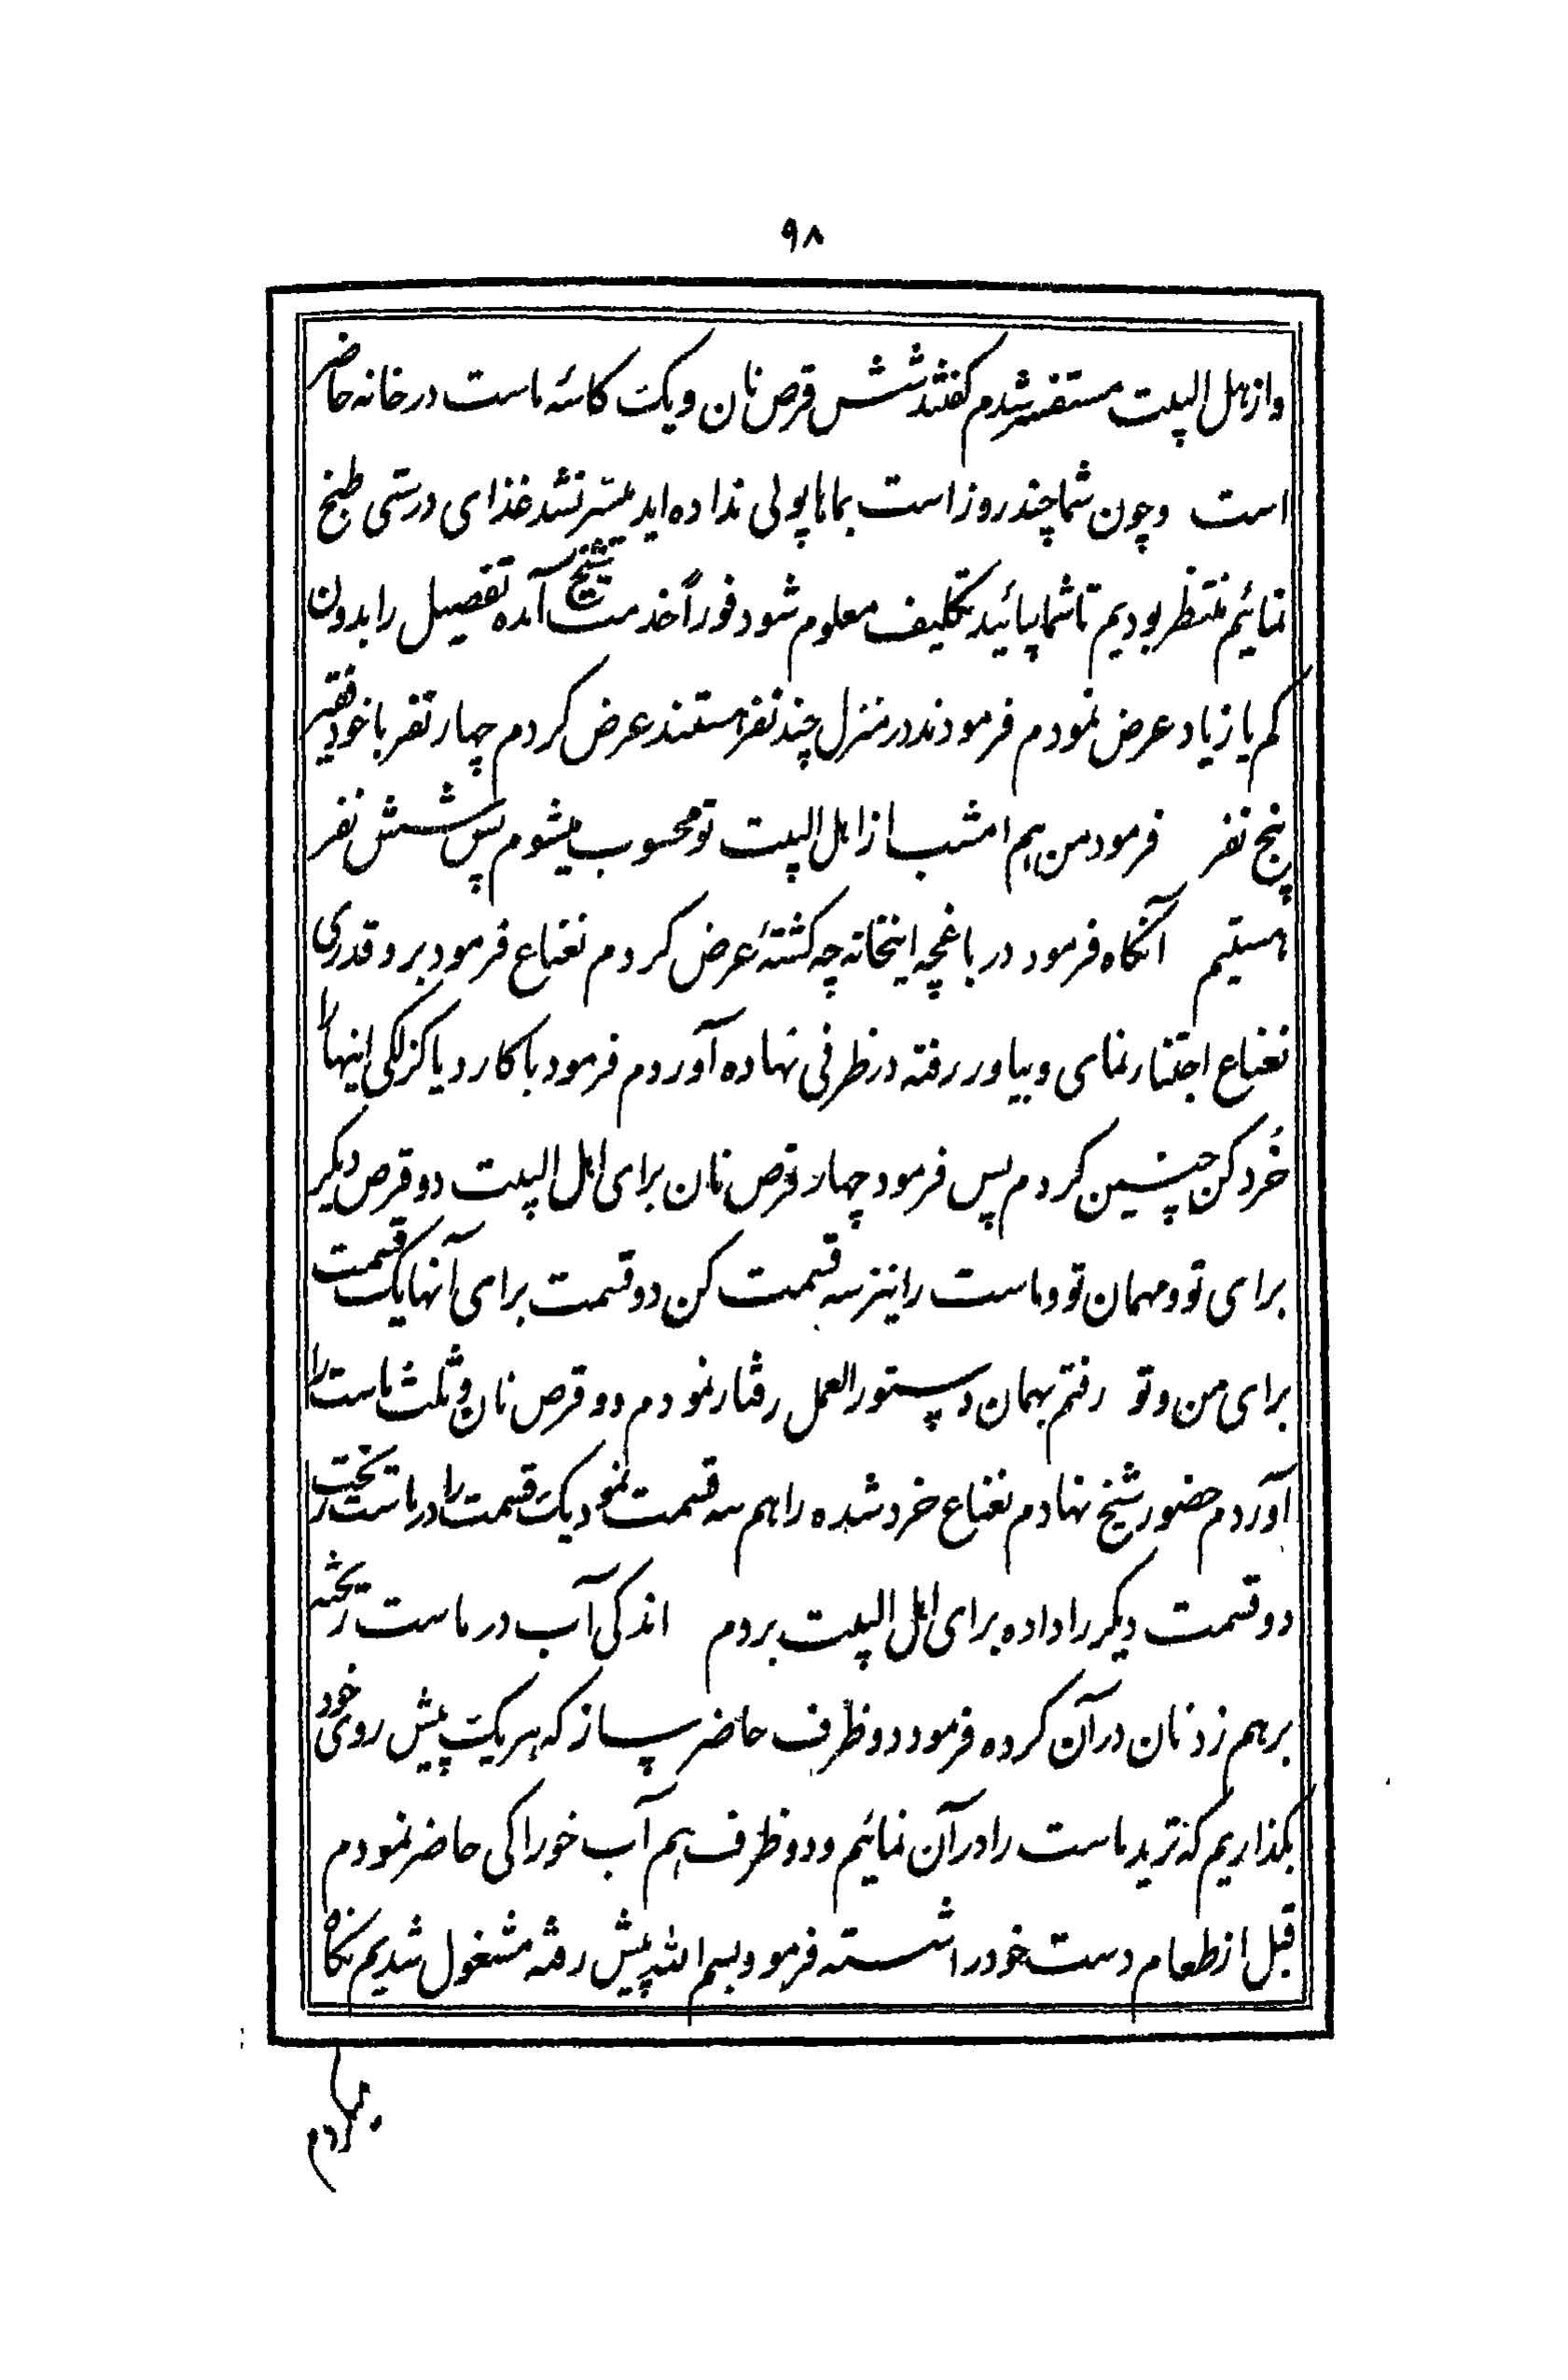 ۹۸
و از اهل البیت مستفسر شدم گفتند شش قرص نان و یک کاسهٔ ماست در خانه حاضر
است و چون شما چند روز است بماها پولی نداده‌اید میسر نشد غذای درستی طبخ
نمائیم منتظر بودیم تا شما بیائید تکلیف معلوم شود فوراً خدمت شیخ آمده تفصیل را بدون
کم یا زیاد عرض نمودم فرمودند در منزل چند نفر هستند عرض کردم چهار نفر با خود فقیر
پنج نفر فرمود من هم امشب از اهل البیت تو محسوب میشوم پس شش نفر
هستیم آنگاه فرمود در باغچه اینخانه چه کشتهٔ عرض کردم نعناع فرمود برو قدری
نعناع اجتناء نمای و بیاور رفته در ظرفی نهاده آوردم فرمود با کارد یا کزلکی اینها را
خُرد کن چنین کردم پس فرمود چهار قرص نان برای اهل البیت دو قرص دیگر
برای تو و مهمان تو و ماست را نیز سه قسمت کن دو قسمت برای آنها یک قسمت
برای من و تو رفتم بهمان دستورالعمل رفتار نمودم دو قرص نان و ثلث ماست را
آوردم حضور شیخ نهادم نعناع خرد شده را هم سه قسمت نمود یک قسمت را در ماست ریخت
دو قسمت دیگر را داده برای اهل البیت بردم اندکی آب در ماست ریخته
برهم زد نان در آن کرده فرمود دو ظرف حاضر ساز که هر یک پیش روی خود
بگذاریم که ترید ماست را در آن نمائیم و دو ظرف هم آب خوراکی حاضر نمودم
قبل از طعام دست خود را شسته فرمود بسم الله پیش رفته مشغول شدیم نگاه